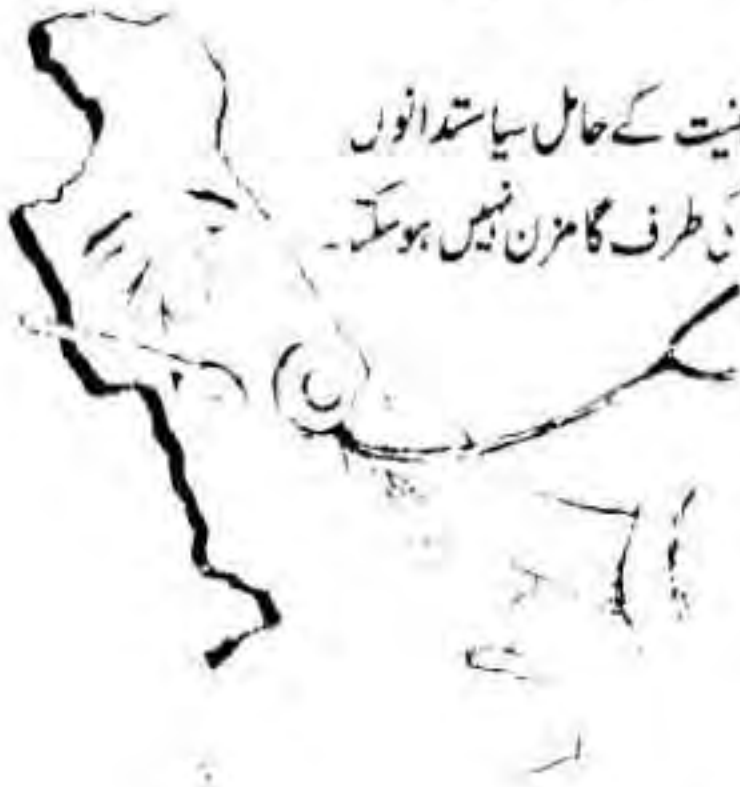 نیت کے حامل سیاستدانوں
کی طرف گامزن نہیں ہوسکتے۔